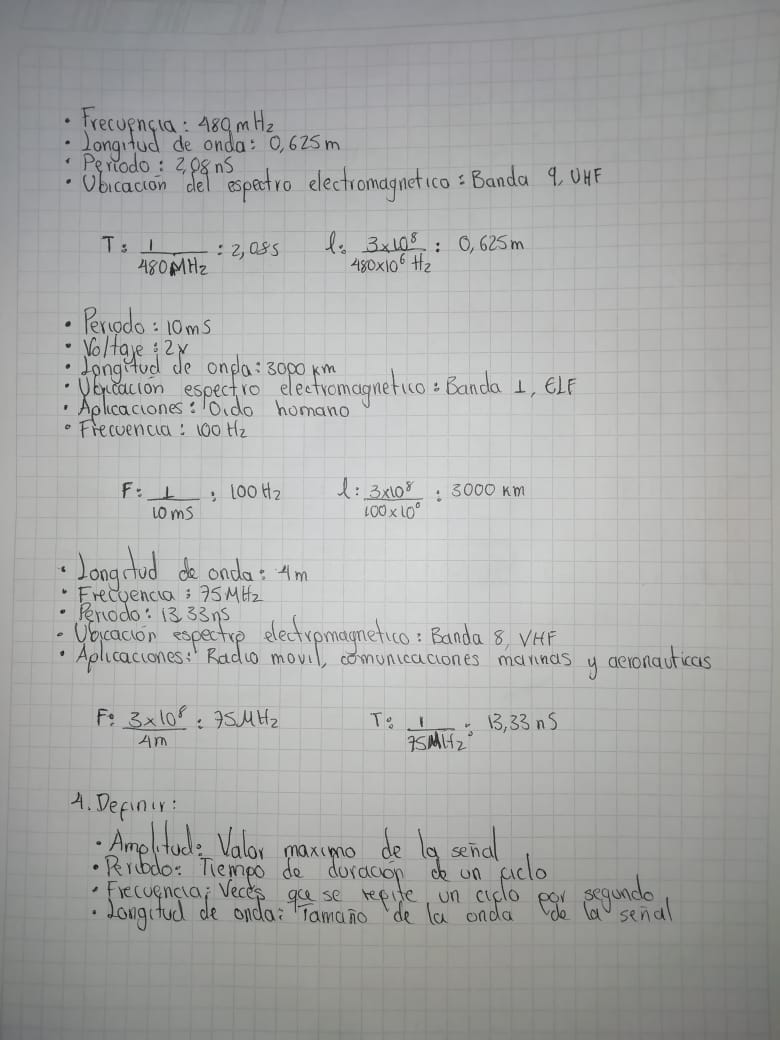 • Frecuencia: 480 mHz
• Longitud de onda: 0,625 m
• Periodo: 2,08 nS
• Ubicación del espectro electromagnetico: Banda 9, UHF
T: 1/480MHz : 2,08s l: 3x10⁸/480x10⁶ Hz : 0,625 m
• Periodo: 10 mS
• Voltaje: 2v
• Longitud de onda: 3000 km
• Ubicacion espectro electromagnetico: Banda 1, ELF
• Aplicaciones: Oido homano
• Frecuencia: 100 Hz
F: 1/10 mS : 100 Hz l: 3x10⁸/100x10⁶ : 3000 km
• Longitud de onda: 4m
• Frecuencia: 75 MHz
• Periodo: 13,33 nS
• Ubicación espectro electromagnetico: Banda 8, VHF
• Aplicaciones: Radio movil, comunicaciones marinas y aeronauticas
F: 3x10⁸/4m : 75 MHz T: 1/75MHz : 13,33 nS
4. Definir:
• Amplitud: Valor maximo de la señal
• Periodo: Tiempo de duracion de un ciclo
• Frecuencia: Veces que se repite un ciclo por segundo
• Longitud de onda: Tamaño de la onda de la señal